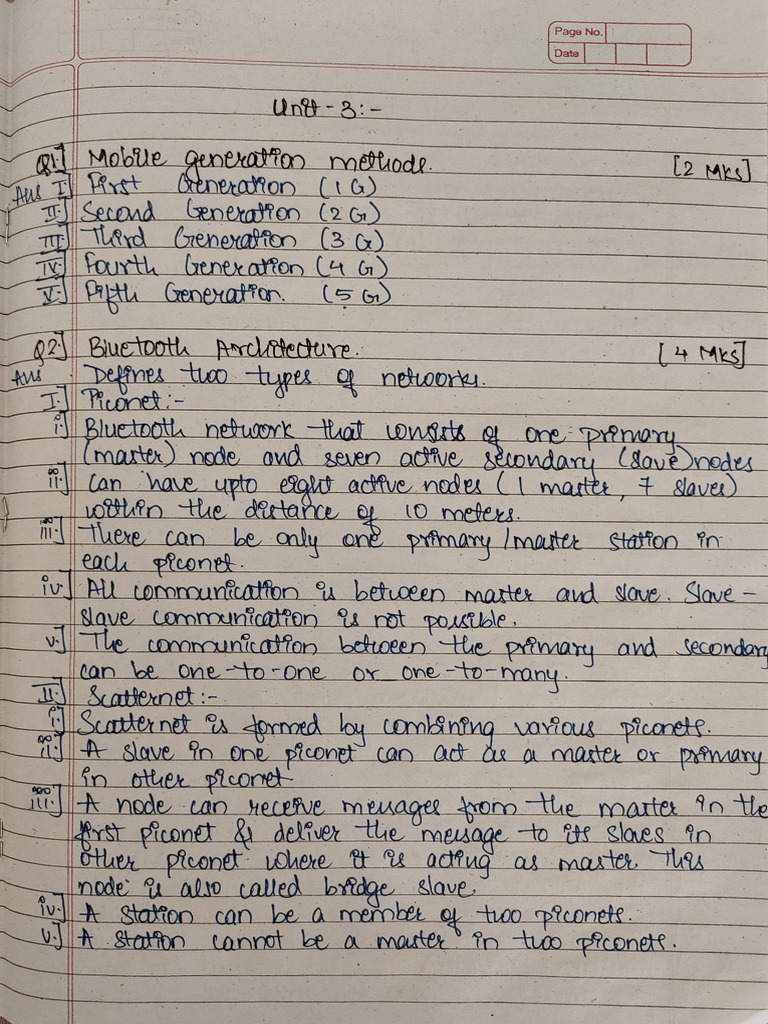 Page No.
Date
Unit-3:-
Q1.] Mobile generation methods. [2 Mks]
Ans I.] First Generation (1G)
II.] Second Generation (2G)
III.] Third Generation (3G)
IV.] Fourth Generation (4G)
V.] Fifth Generation. (5G)
Q2.] Bluetooth Architecture. [4 Mks]
Ans Defines two types of networks.
I.] Piconet:-
i.] Bluetooth network that consists of one primary
(master) node and seven active secondary (slave) nodes
ii.] Can have upto eight active nodes (1 master, 7 slaves)
within the distance of 10 meters.
iii.] There can be only one primary/master station in
each piconet.
iv.] All communication is between master and slave. Slave-
slave communication is not possible.
v.] The communication between the primary and secondary
can be one-to-one or one-to-many.
II.] Scatternet:-
i.] Scatternet is formed by combining various piconets.
ii.] A slave in one piconet can act as a master or primary
in other piconet.
iii.] A node can receive messages from the master in the
first piconet & deliver the message to its slaves in
other piconet where it is acting as master. This
node is also called bridge slave.
iv.] A station can be a member of two piconets.
v.] A station cannot be a master in two piconets.